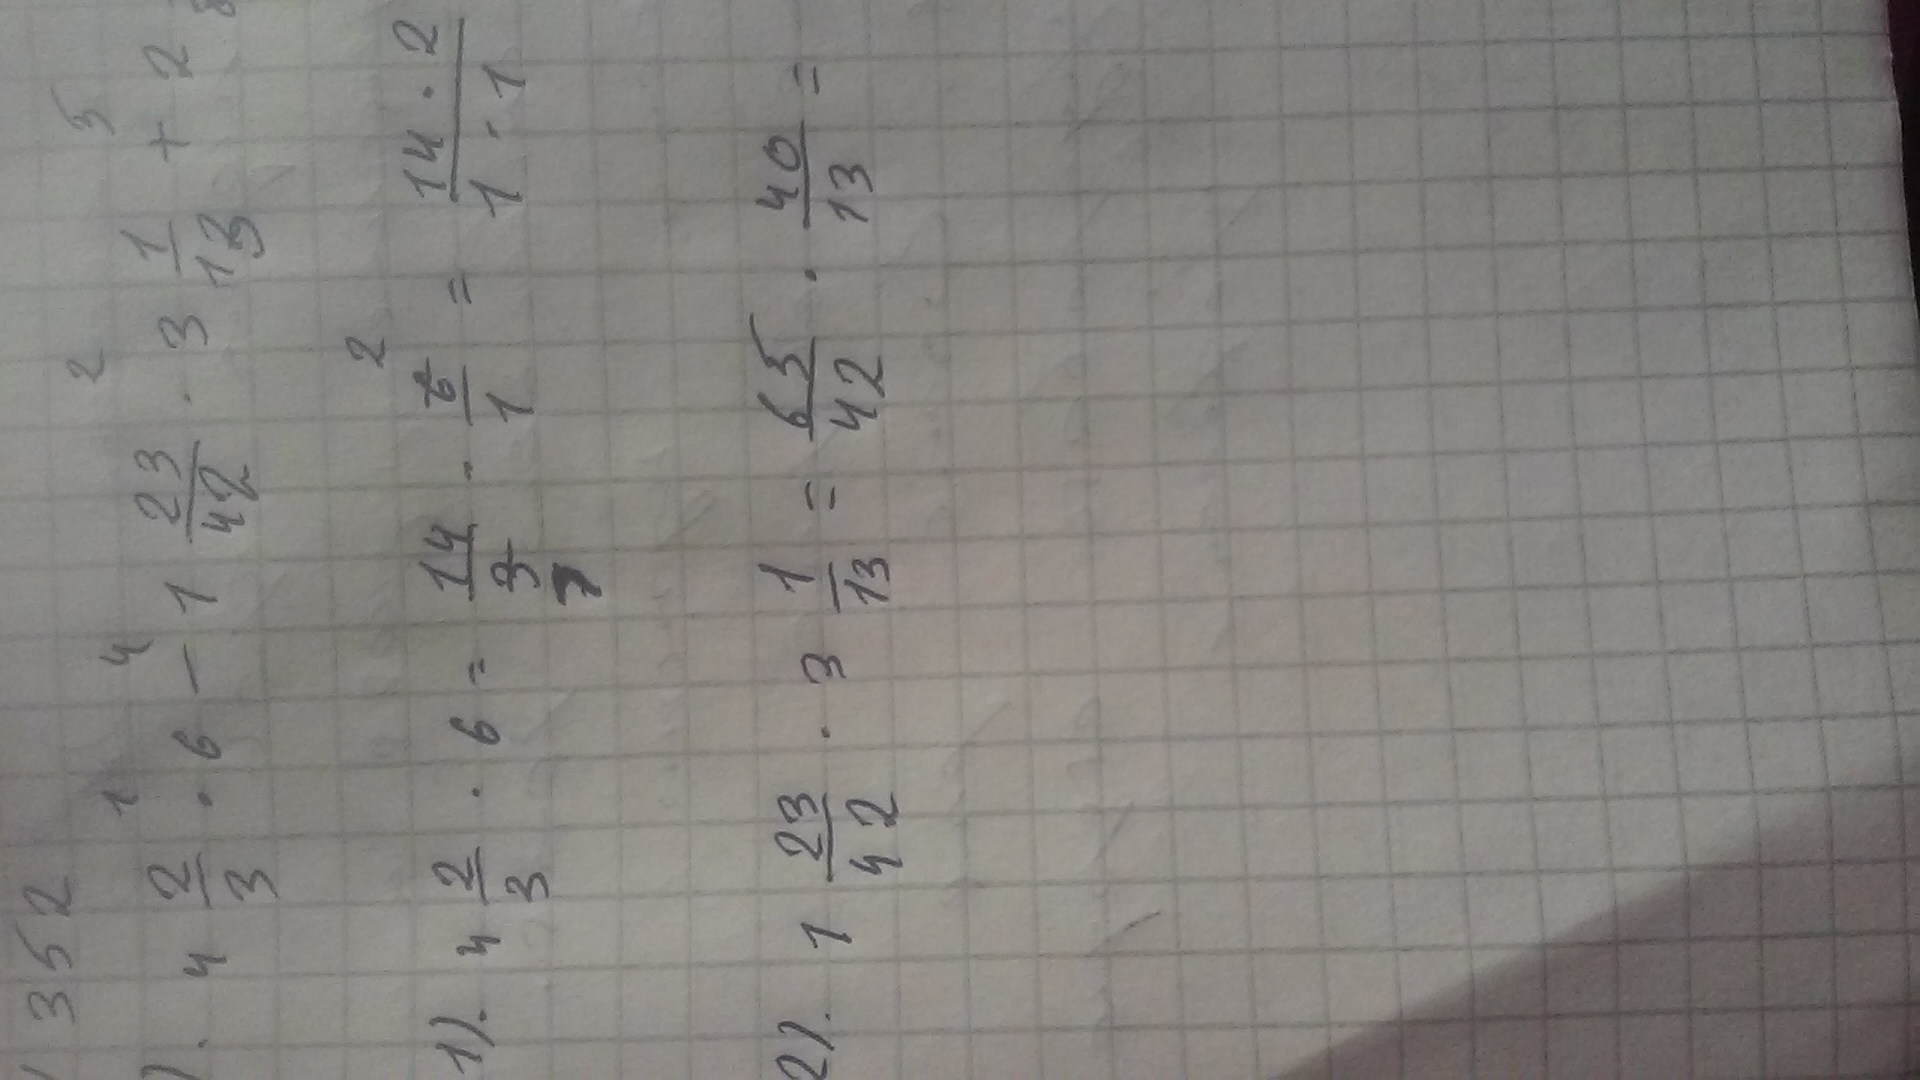 352
1 4 2 5
). 4 2/3 · 6 − 1 23/42 · 3 1/13 + 2
1). 4 2/3 · 6 = 14/3 · 6/1 = 14 · 2/1 · 1
2). 1 23/42 · 3 1/13 = 65/42 · 40/13 =